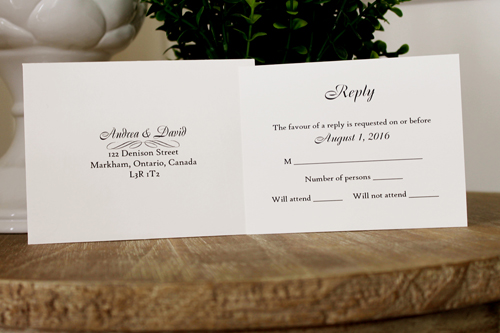 Andrea & David
122 Denison Street
Markham, Ontario, Canada
L3R 1T2
Reply
The favour of a reply is requested on or before
August 1, 2016
M
Number of persons
Will attend Will not attend